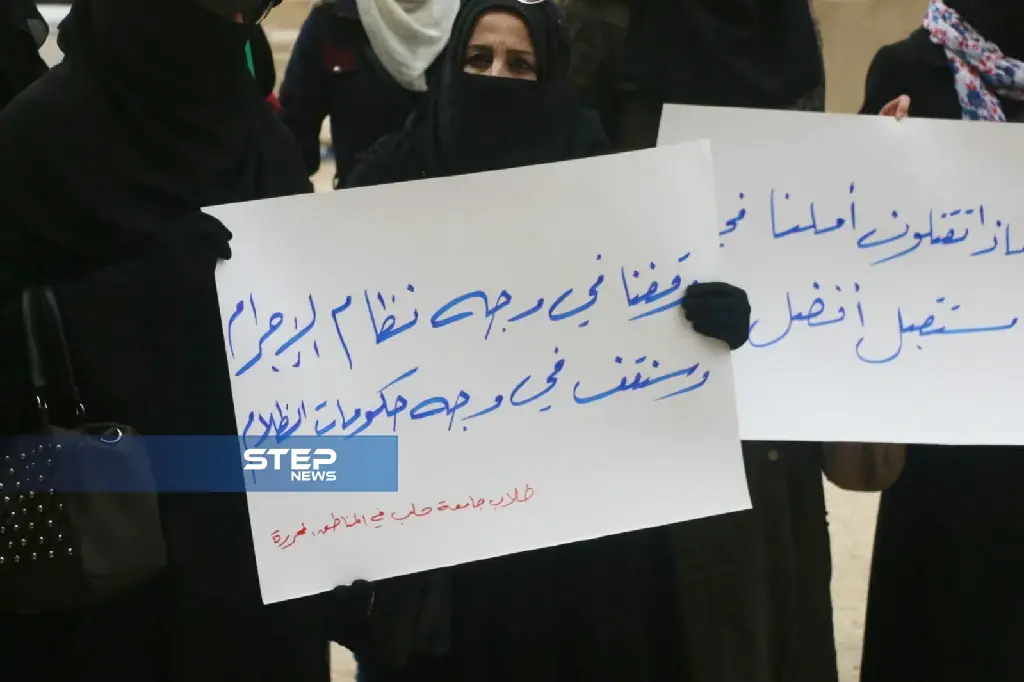 وقفنا في وجه نظام الإجرام
وسنقف في وجه حكومات الظلام
طلاب جامعة حلب في المناطق المحررة
لماذا تقتلون أملنا في
مستقبل أفضل
STEP
NEWS